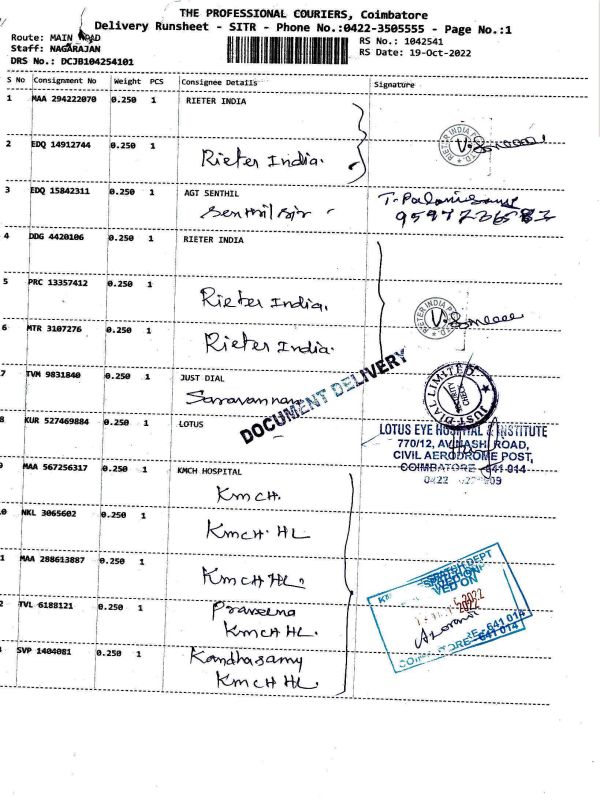 THE PROFESSIONAL COURIERS, Coimbatore
Delivery Runsheet - SITR - Phone No.:0422-3505555 - Page No.:1
Route: MAIN ROAD
RS No.: 1042541
Staff: NAGARAJAN
RS Date: 19-Oct-2022
DRS No.: DCJB104254101
S No Consignment No Weight PCS Consignee Details Signature
1 MAA 294222070 0.250 1 RIETER INDIA
2 EDQ 14912744 0.250 1
Rieter India.
RIETER INDIA
3 EDQ 15842311 0.250 1 AGT SENTHIL
Senthil Sir
4 DDG 4420106 0.250 1 RIETER INDIA
5 PRC 13357412 0.250 1
Rieter India.
6 MTR 3107276 0.250 1
Rieter India.
RIETER INDIA
7 TVM 9831840 0.250 1 JUST DIAL
Saravannan
JUST-DIAL LIMITED
DOCUMENT DELIVERY
8 KUR 527469884 0.250 1 LOTUS
LOTUS EYE HOSPITAL & INSTITUTE
770/12, AVINASHI ROAD,
CIVIL AERODROME POST,
COIMBATORE - 641 014
0422
9 MAA 567256317 0.250 1 KMCH HOSPITAL
KMCH.
0 NKL 3065602 0.250 1
KMCH HL
1 MAA 288613887 0.250 1
KMCH HL.
2 TVL 6188121 0.250 1
Praveena
KMCH HL.
SVP 1404081 0.250 1
Kandhasamy
KMCH HL
2022
641 014